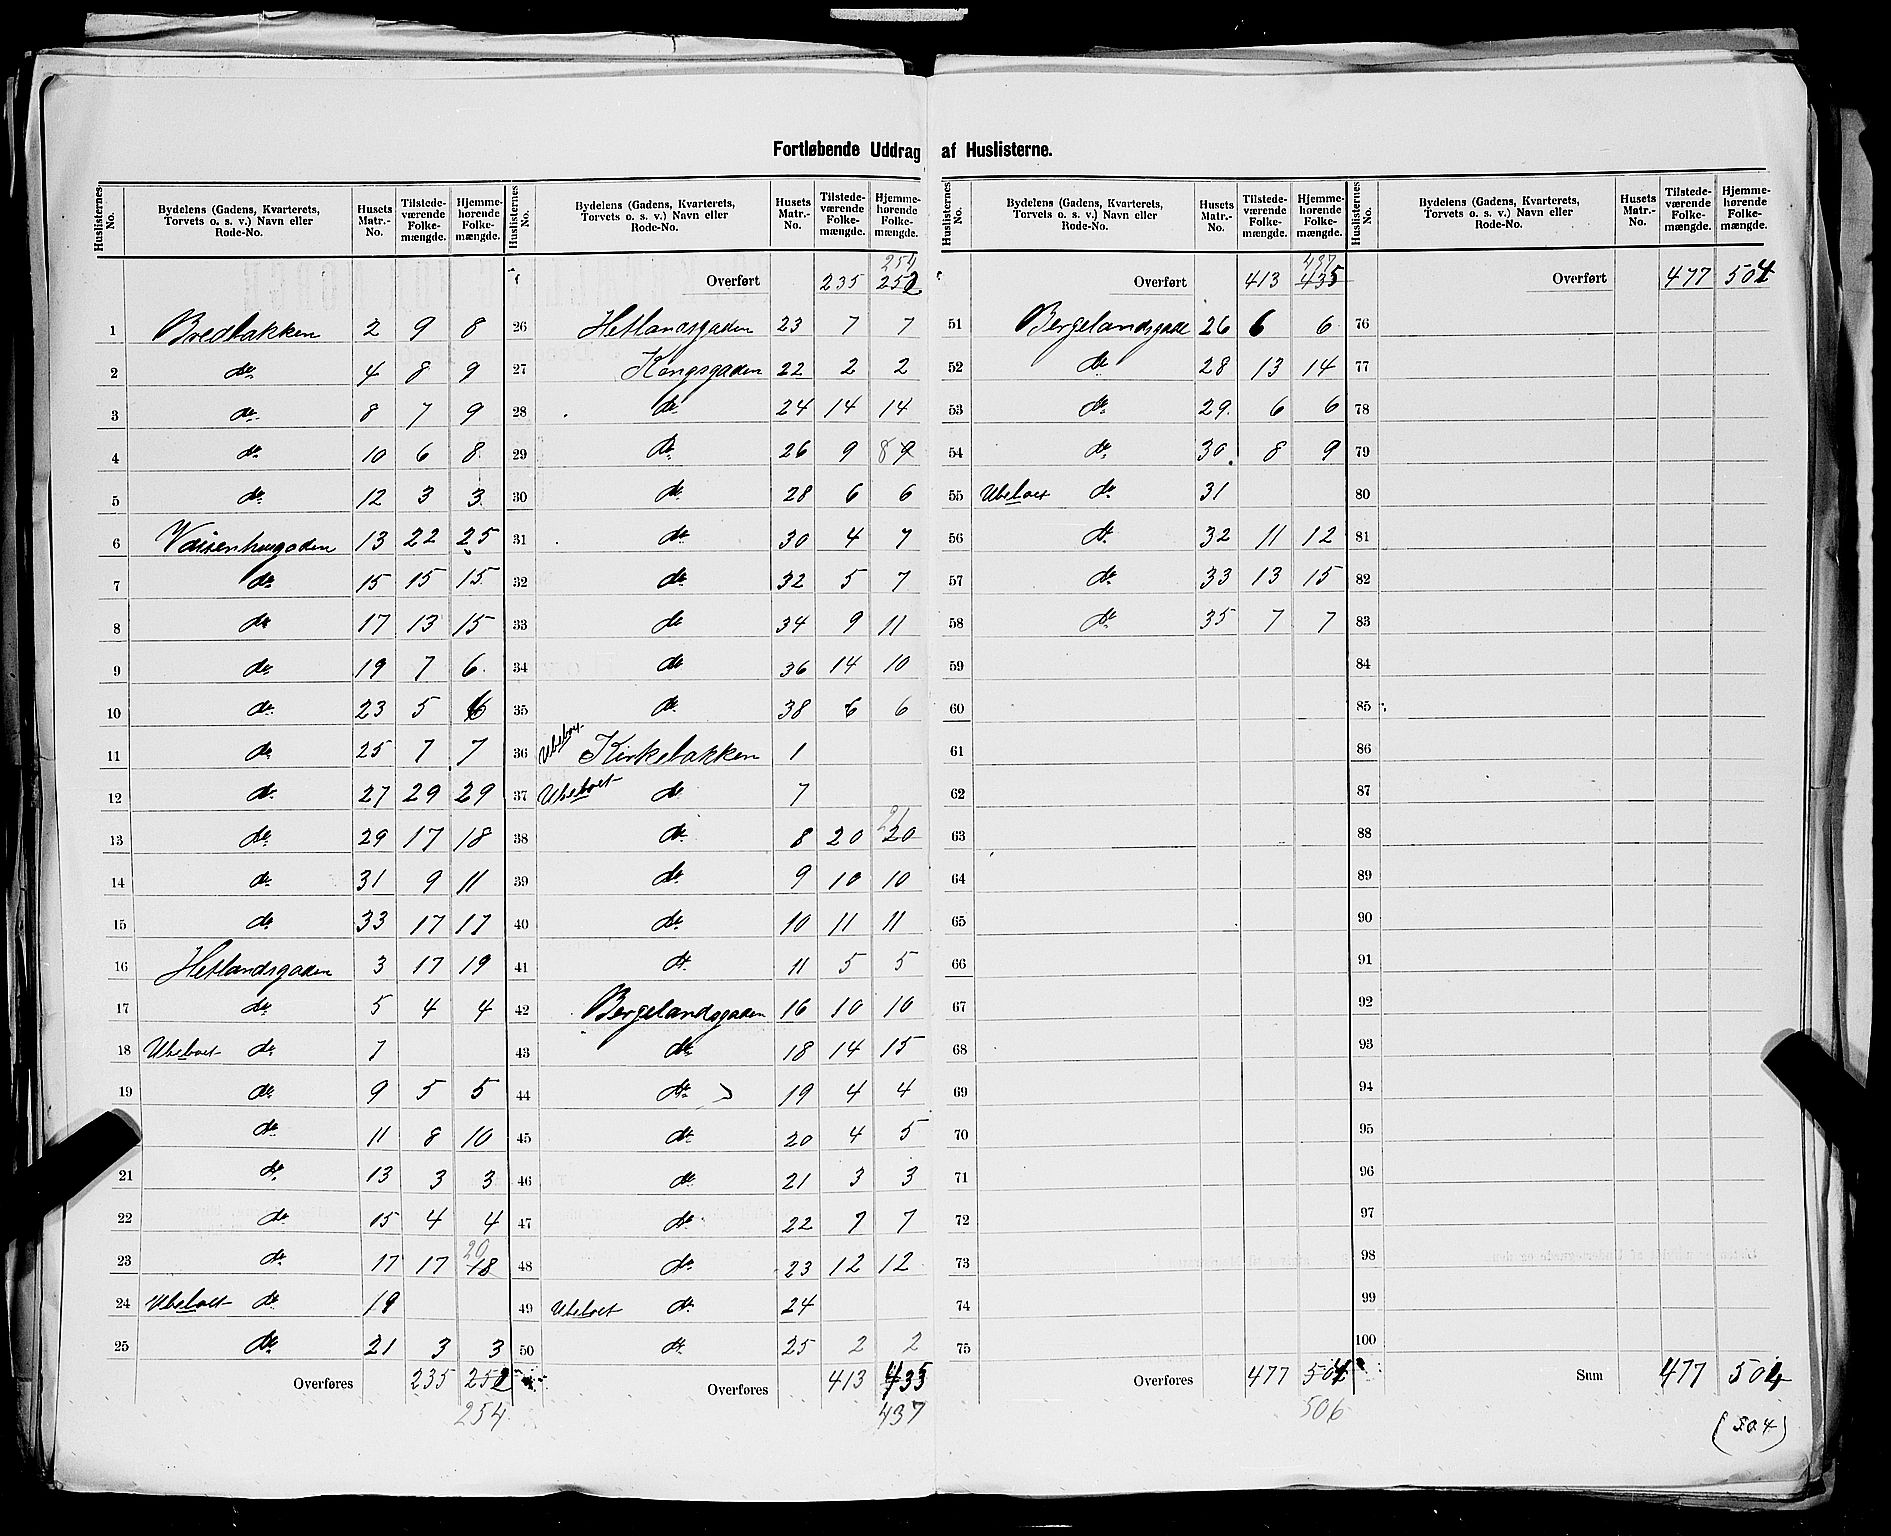 Fortløbende Uddrag af Huslisterne.
Huslisternes No. | Bydelens (Gadens, Kvarterets, Torvets o. s. v.) Navn eller Rode-No. | Husets Matr.-No. | Tilstedeværende Folkemængde. | Hjemmehørende Folkemængde.
1 Bredbakken 2 9 8
2 do 4 8 9
3 do 8 7 9
4 do 10 6 8
5 do 12 3 3
6 Vaisenhusgaden 13 22 25
7 do 15 15 15
8 do 17 13 15
9 do 19 7 6
10 do 23 5 6
11 do 25 7 7
12 do 27 29 29
13 do 29 17 18
14 do 31 9 11
15 do 33 17 17
16 Hetlandsgaden 3 17 19
17 do 5 4 4
18 Ubeboet do 7
19 do 9 5 5
do 11 8 10
21 do 13 3 3
22 do 15 4 4
23 do 17 17 18 20
24 Ubeboet do 19
25 do 21 3 3
Overføres 235 252
254
Huslisternes No. | Bydelens (Gadens, Kvarterets, Torvets o. s. v.) Navn eller Rode-No. | Husets Matr.-No. | Tilstedeværende Folkemængde. | Hjemmehørende Folkemængde.
254
Overført 235 252
26 Hetlandsgaden 23 7 7
27 Kongsgaden 22 2 2
28 do 24 14 14
29 do 26 9 8 9
30 do 28 6 6
31 do 30 4 7
32 do 32 5 7
33 do 34 9 11
34 do 36 14 10
35 do 38 6 6
36 Ubeboet Kirkebakken 1
37 Ubeboet do 7
38 do 8 20 20 21
39 do 9 10 10
40 do 10 11 11
41 do 11 5 5
42 Bergelandsgaden 16 10 10
43 do 18 14 15
44 do 19 4 4
45 do 20 4 5
46 do 21 3 3
47 do 22 7 7
48 do 23 12 12
49 Ubeboet do 24
50 do 25 2 2
Overføres 413 435
437
Huslisternes No. | Bydelens (Gadens, Kvarterets, Torvets o. s. v.) Navn eller Rode-No. | Husets Matr.-No. | Tilstedeværende Folkemængde. | Hjemmehørende Folkemængde.
51
437
Overført 413 435
Bergelandsgade 26 6 6
52 do 28 13 14
53 do 29 6 6
54 do 30 8 9
55 Ubeboet do 31
56 do 32 11 12
57 do 33 13 15
58 do 35 7 7
59
60
61
62
63
64
65
66
67
68
69
70
71
72
73
74
75
Overføres 477 504
506
Huslisternes No. | Bydelens (Gadens, Kvarterets, Torvets o. s. v.) Navn eller Rode-No. | Husets Matr.-No. | Tilstedeværende Folkemængde. | Hjemmehørende Folkemængde.
Overført 477 504
76
77
78
79
80
81
82
83
84
85
86
87
88
89
90
91
92
93
94
95
96
97
98
99
100
Sum 477 504
(504)